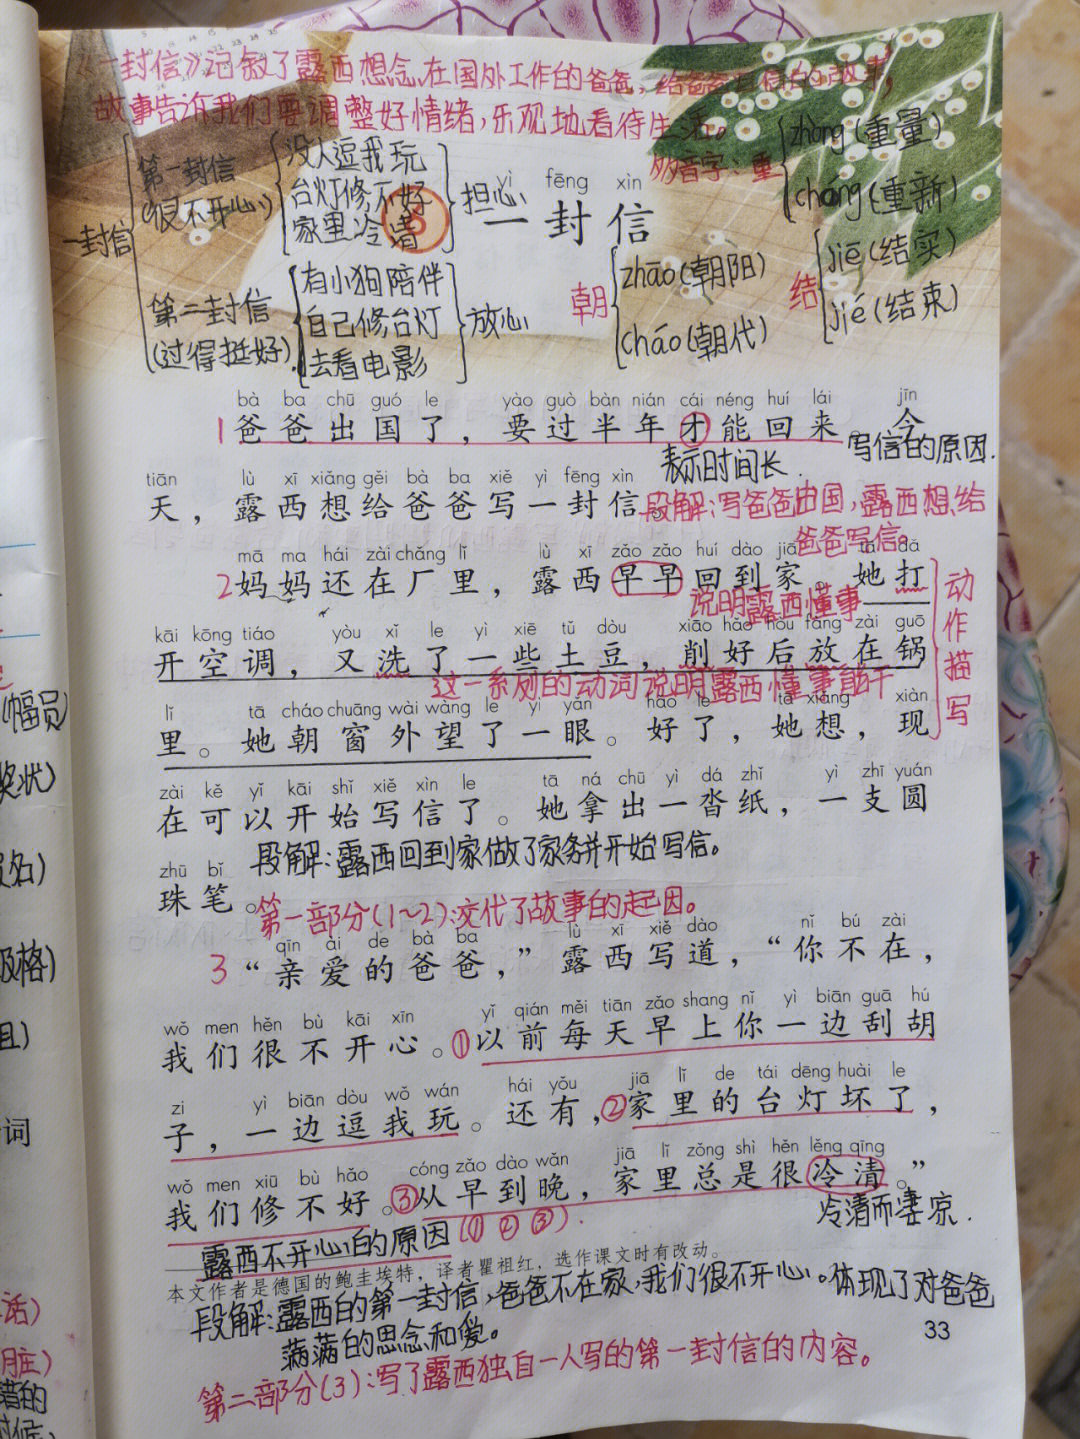 《一封信》记叙了露西想念在国外工作的爸爸，给爸爸写信的故事，
故事告诉我们要调整好情绪，乐观地看待生活。
一封信
第一封信
(很不开心)
没人逗我玩
台灯修不好
家里冷清
担心
第二封信
(过得挺好)
有小狗陪伴
自己修台灯
去看电影
放心
6
yì fēng xìn
一封信
多音字：重
zhòng(重量)
chóng(重新)
朝
zhāo(朝阳)
cháo(朝代)
结
jiē(结实)
jié(结束)
bà ba chū guó le yào guò bàn nián cái néng huí lái jīn
1爸爸出国了，要过半年才能回来。今
表示时间长.
写信的原因.
tiān lù xī xiǎng gěi bà ba xiě yì fēng xìn
天，露西想给爸爸写一封信。
段解：写爸爸出国，露西想给
爸爸写信。
mā ma hái zài chǎng lǐ lù xī zǎo zǎo huí dào jiā tā dǎ
2妈妈还在厂里，露西早早回到家。她打
说明露西懂事
动作描写
kāi kōng tiáo yòu xǐ le yì xiē tǔ dòu xiāo hǎo hòu fàng zài guō
开空调，又洗了一些土豆，削好后放在锅
这一系列的动词说明露西懂事能干
lǐ tā cháo chuāng wài wàng le yì yǎn hǎo le tā xiǎng xiàn
里。她朝窗外望了一眼。好了，她想，现
zài kě yǐ kāi shǐ xiě xìn le tā ná chū yì dá zhǐ yì zhī yuán
在可以开始写信了。她拿出一沓纸，一支圆
zhū bǐ
珠笔。
段解：露西回到家做了家务并开始写信。
第一部分(1~2)：交代了故事的起因。
qīn ài de bà ba lù xī xiě dào nǐ bú zài
3“亲爱的爸爸，”露西写道，“你不在，
wǒ men hěn bù kāi xīn yǐ qián měi tiān zǎo shang nǐ yì biān guā hú
我们很不开心。①以前每天早上你一边刮胡
zi yì biān dòu wǒ wán hái yǒu jiā lǐ de tái dēng huài le
子，一边逗我玩。还有，②家里的台灯坏了，
wǒ men xiū bù hǎo cóng zǎo dào wǎn jiā lǐ zǒng shì hěn lěng qīng
我们修不好。③从早到晚，家里总是很冷清。”
冷清而凄凉.
露西不开心的原因(①②③).
本文作者是德国的鲍圭埃特，译者瞿祖红，选作课文时有改动。
段解：露西的第一封信，爸爸不在家，我们很不开心。体现了对爸爸
满满的思念和爱。
33
第二部分(3)：写了露西独自一人写的第一封信的内容。
(幅员)
奖状)
及格)
词